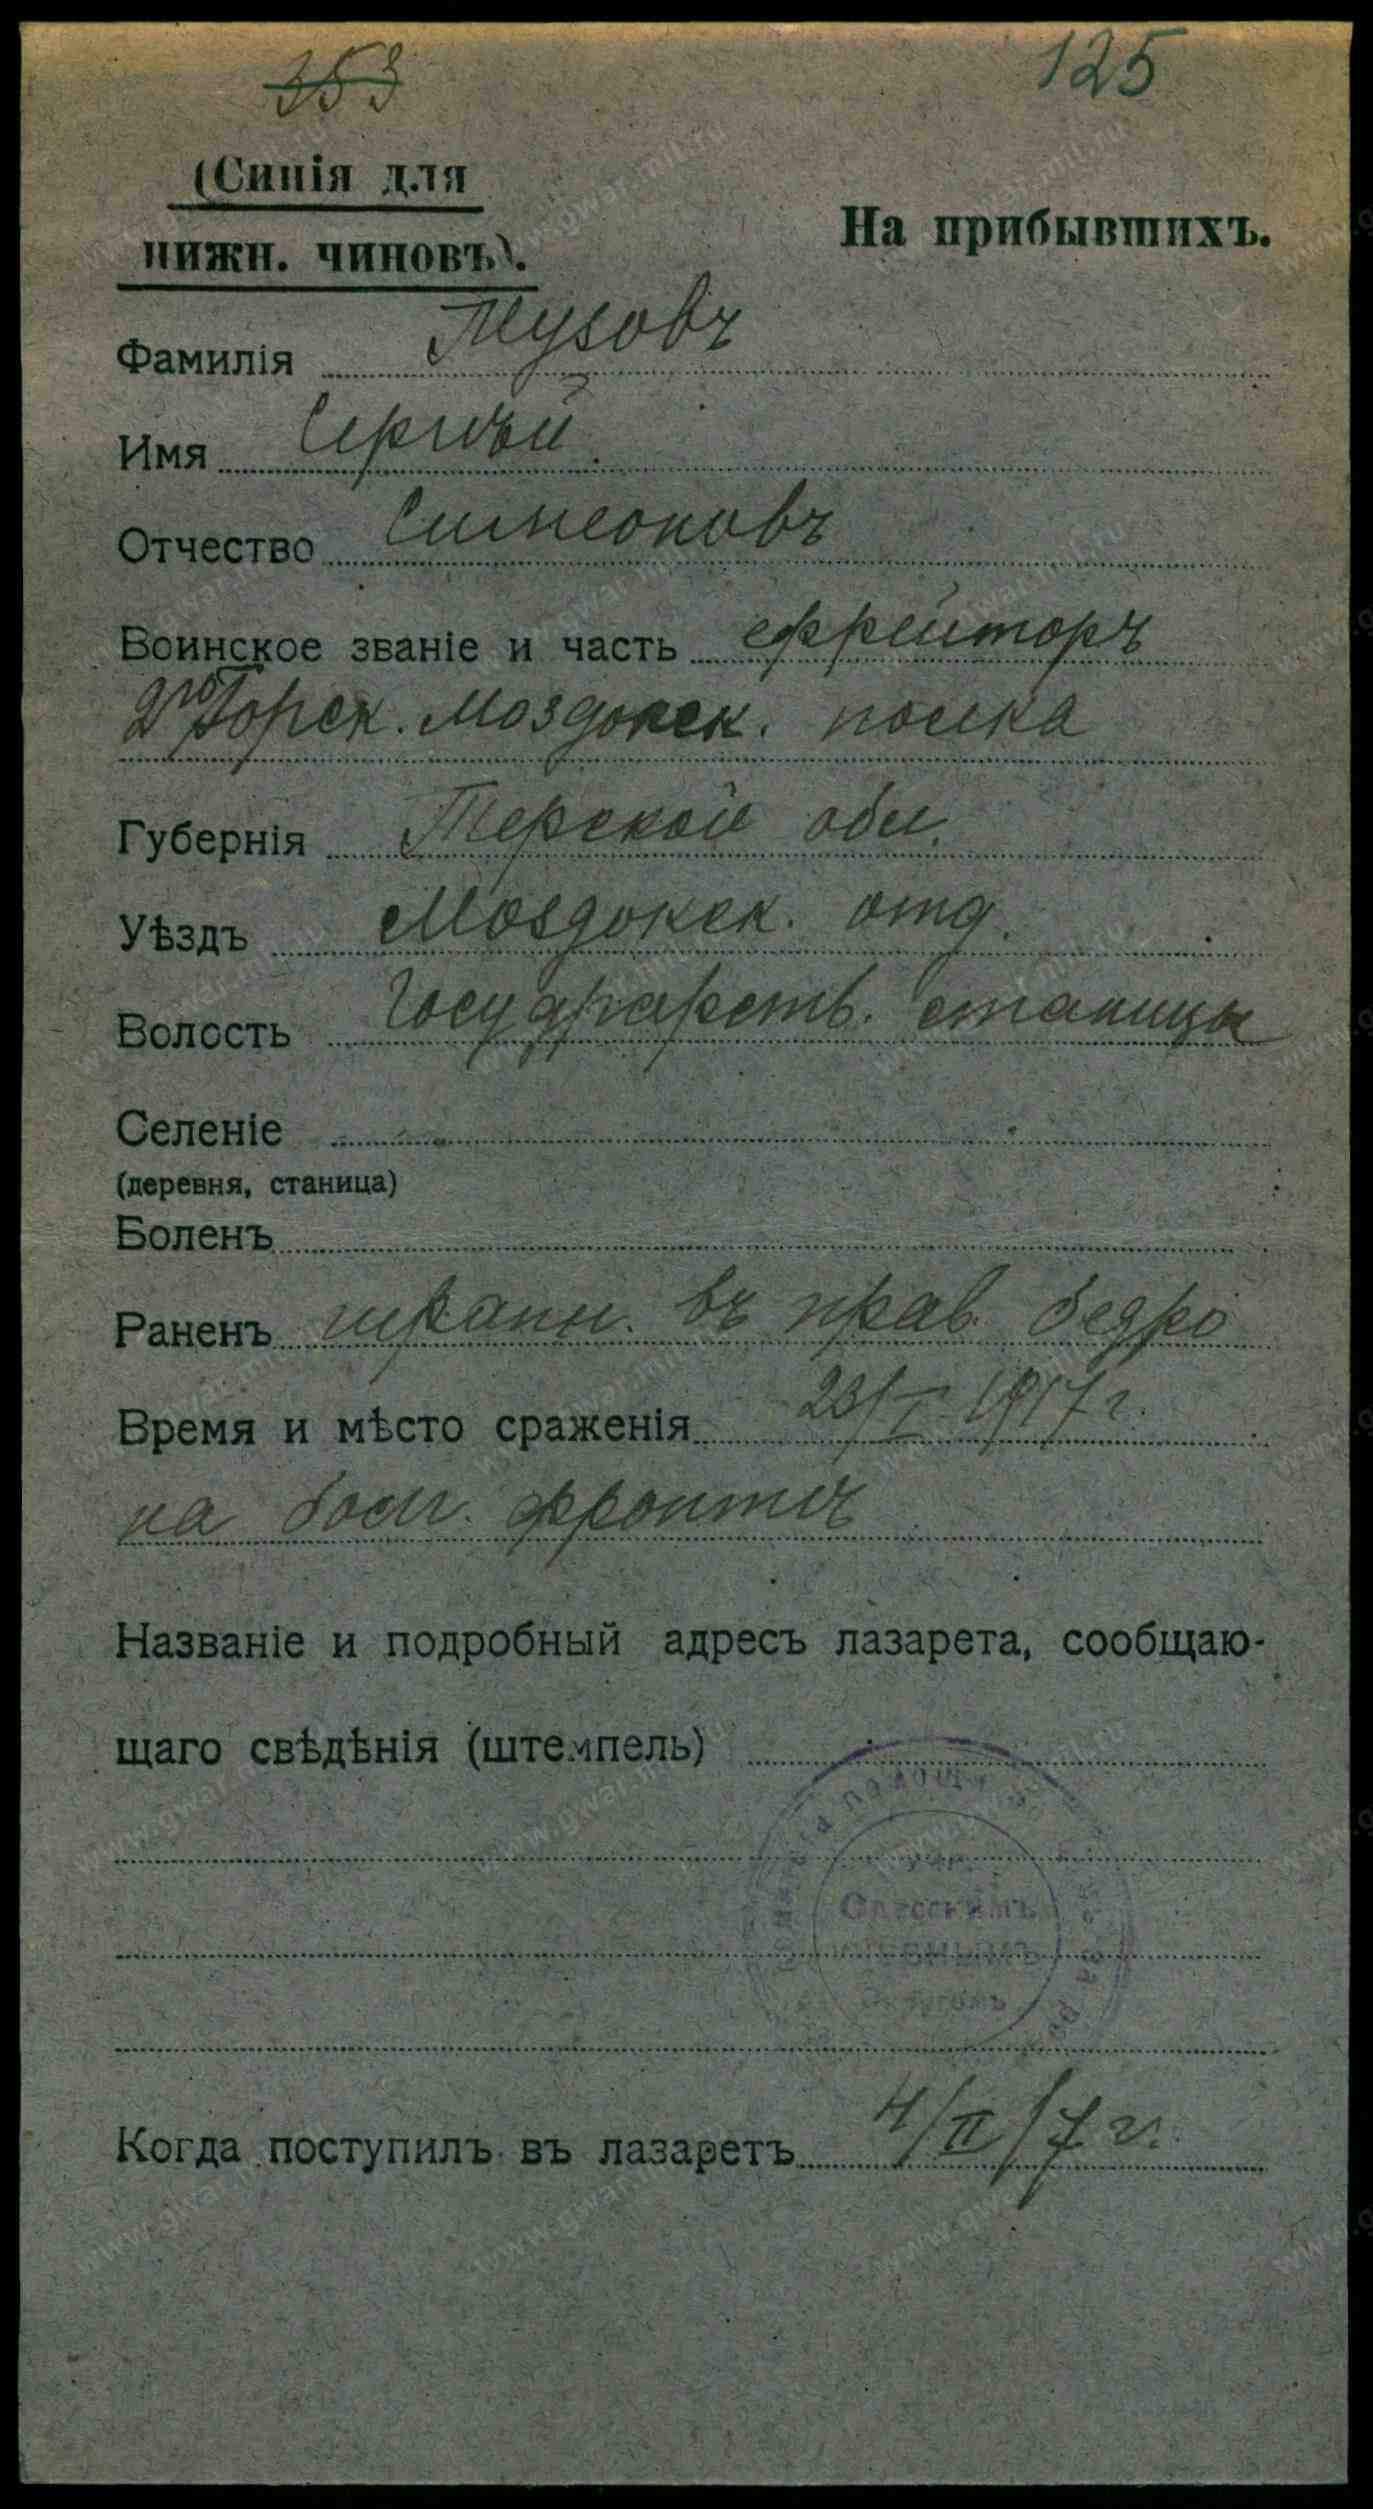 353 125
(Синія для
нижн. чиновъ).
На прибывшихъ.
Фамилія Тузовъ
Имя Сергѣй
Отчество Симеоновъ
Воинское званіе и часть ефрейторъ
2го Горск. Моздокск. полка
Губернія Терской обл.
Уѣздъ Моздокск. отд.
Волость Государств. станицы
Селеніе
(деревня, станица)
Боленъ
Раненъ шрапн. въ прав. бедро
Время и мѣсто сраженія 23/I 1917 г.
на боев. фронтѣ
Названіе и подробный адресъ лазарета, сообщаю-
щаго свѣдѣнія (штемпель)
Одесскимъ
Когда поступилъ въ лазаретъ 4/II/7 г.
www.gwar.mil.ru